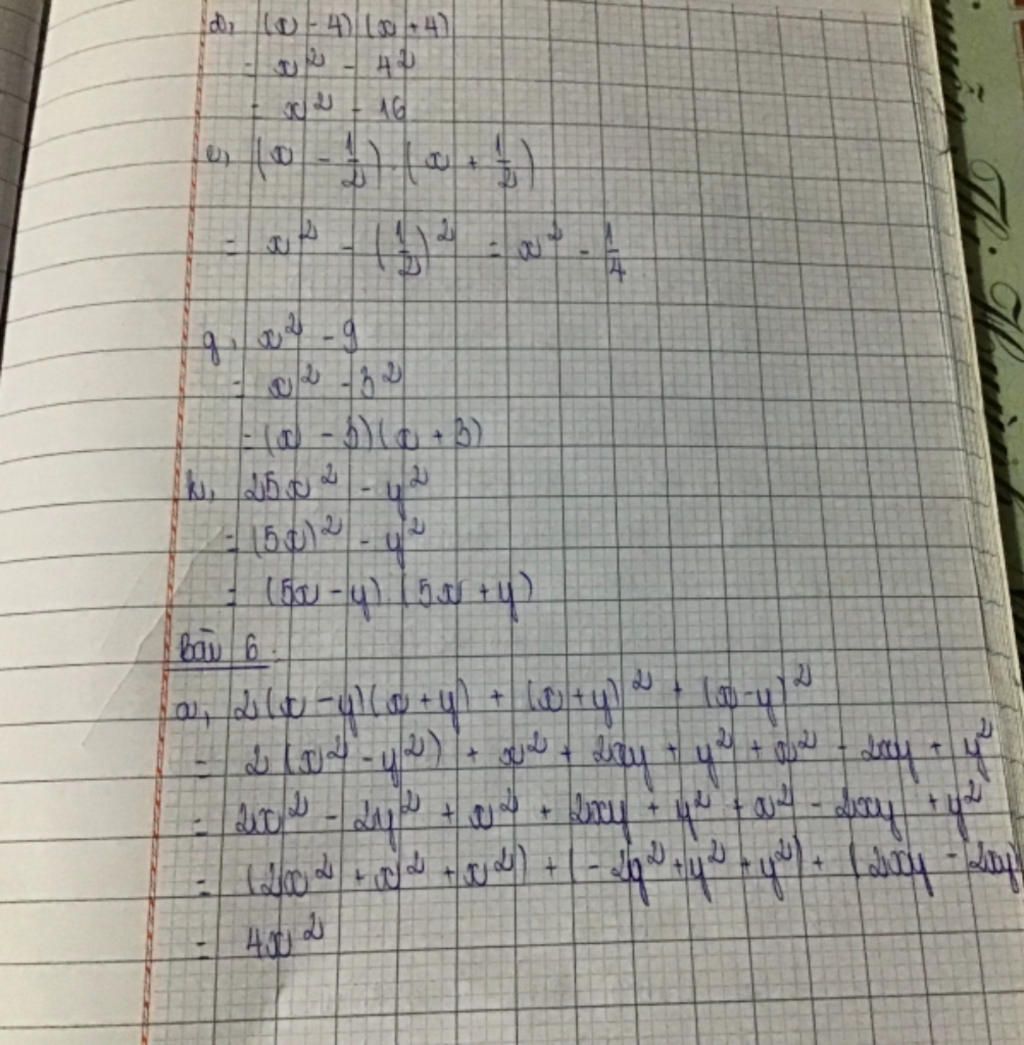 d, (x - 4)(x + 4)
= x² - 4²
= x² - 16
e, (x - 1/2) . (x + 1/2)
= x² - (1/2)² = x² - 1/4
g, x² - 9
= x² - 3²
= (x - 3)(x + 3)
h, 25x² - y²
= (5x)² - y²
= (5x - y) (5x + y)
Bài 6.
a, 2(x - y)(x + y) + (x + y)² + (x - y)²
= 2(x² - y²) + x² + 2xy + y² + x² - 2xy + y²
= 2x² - 2y² + x² + 2xy + y² + x² - 2xy + y²
= (2x² + x² + x²) + (-2y² + y² + y²) + (2xy - 2xy)
= 4x²